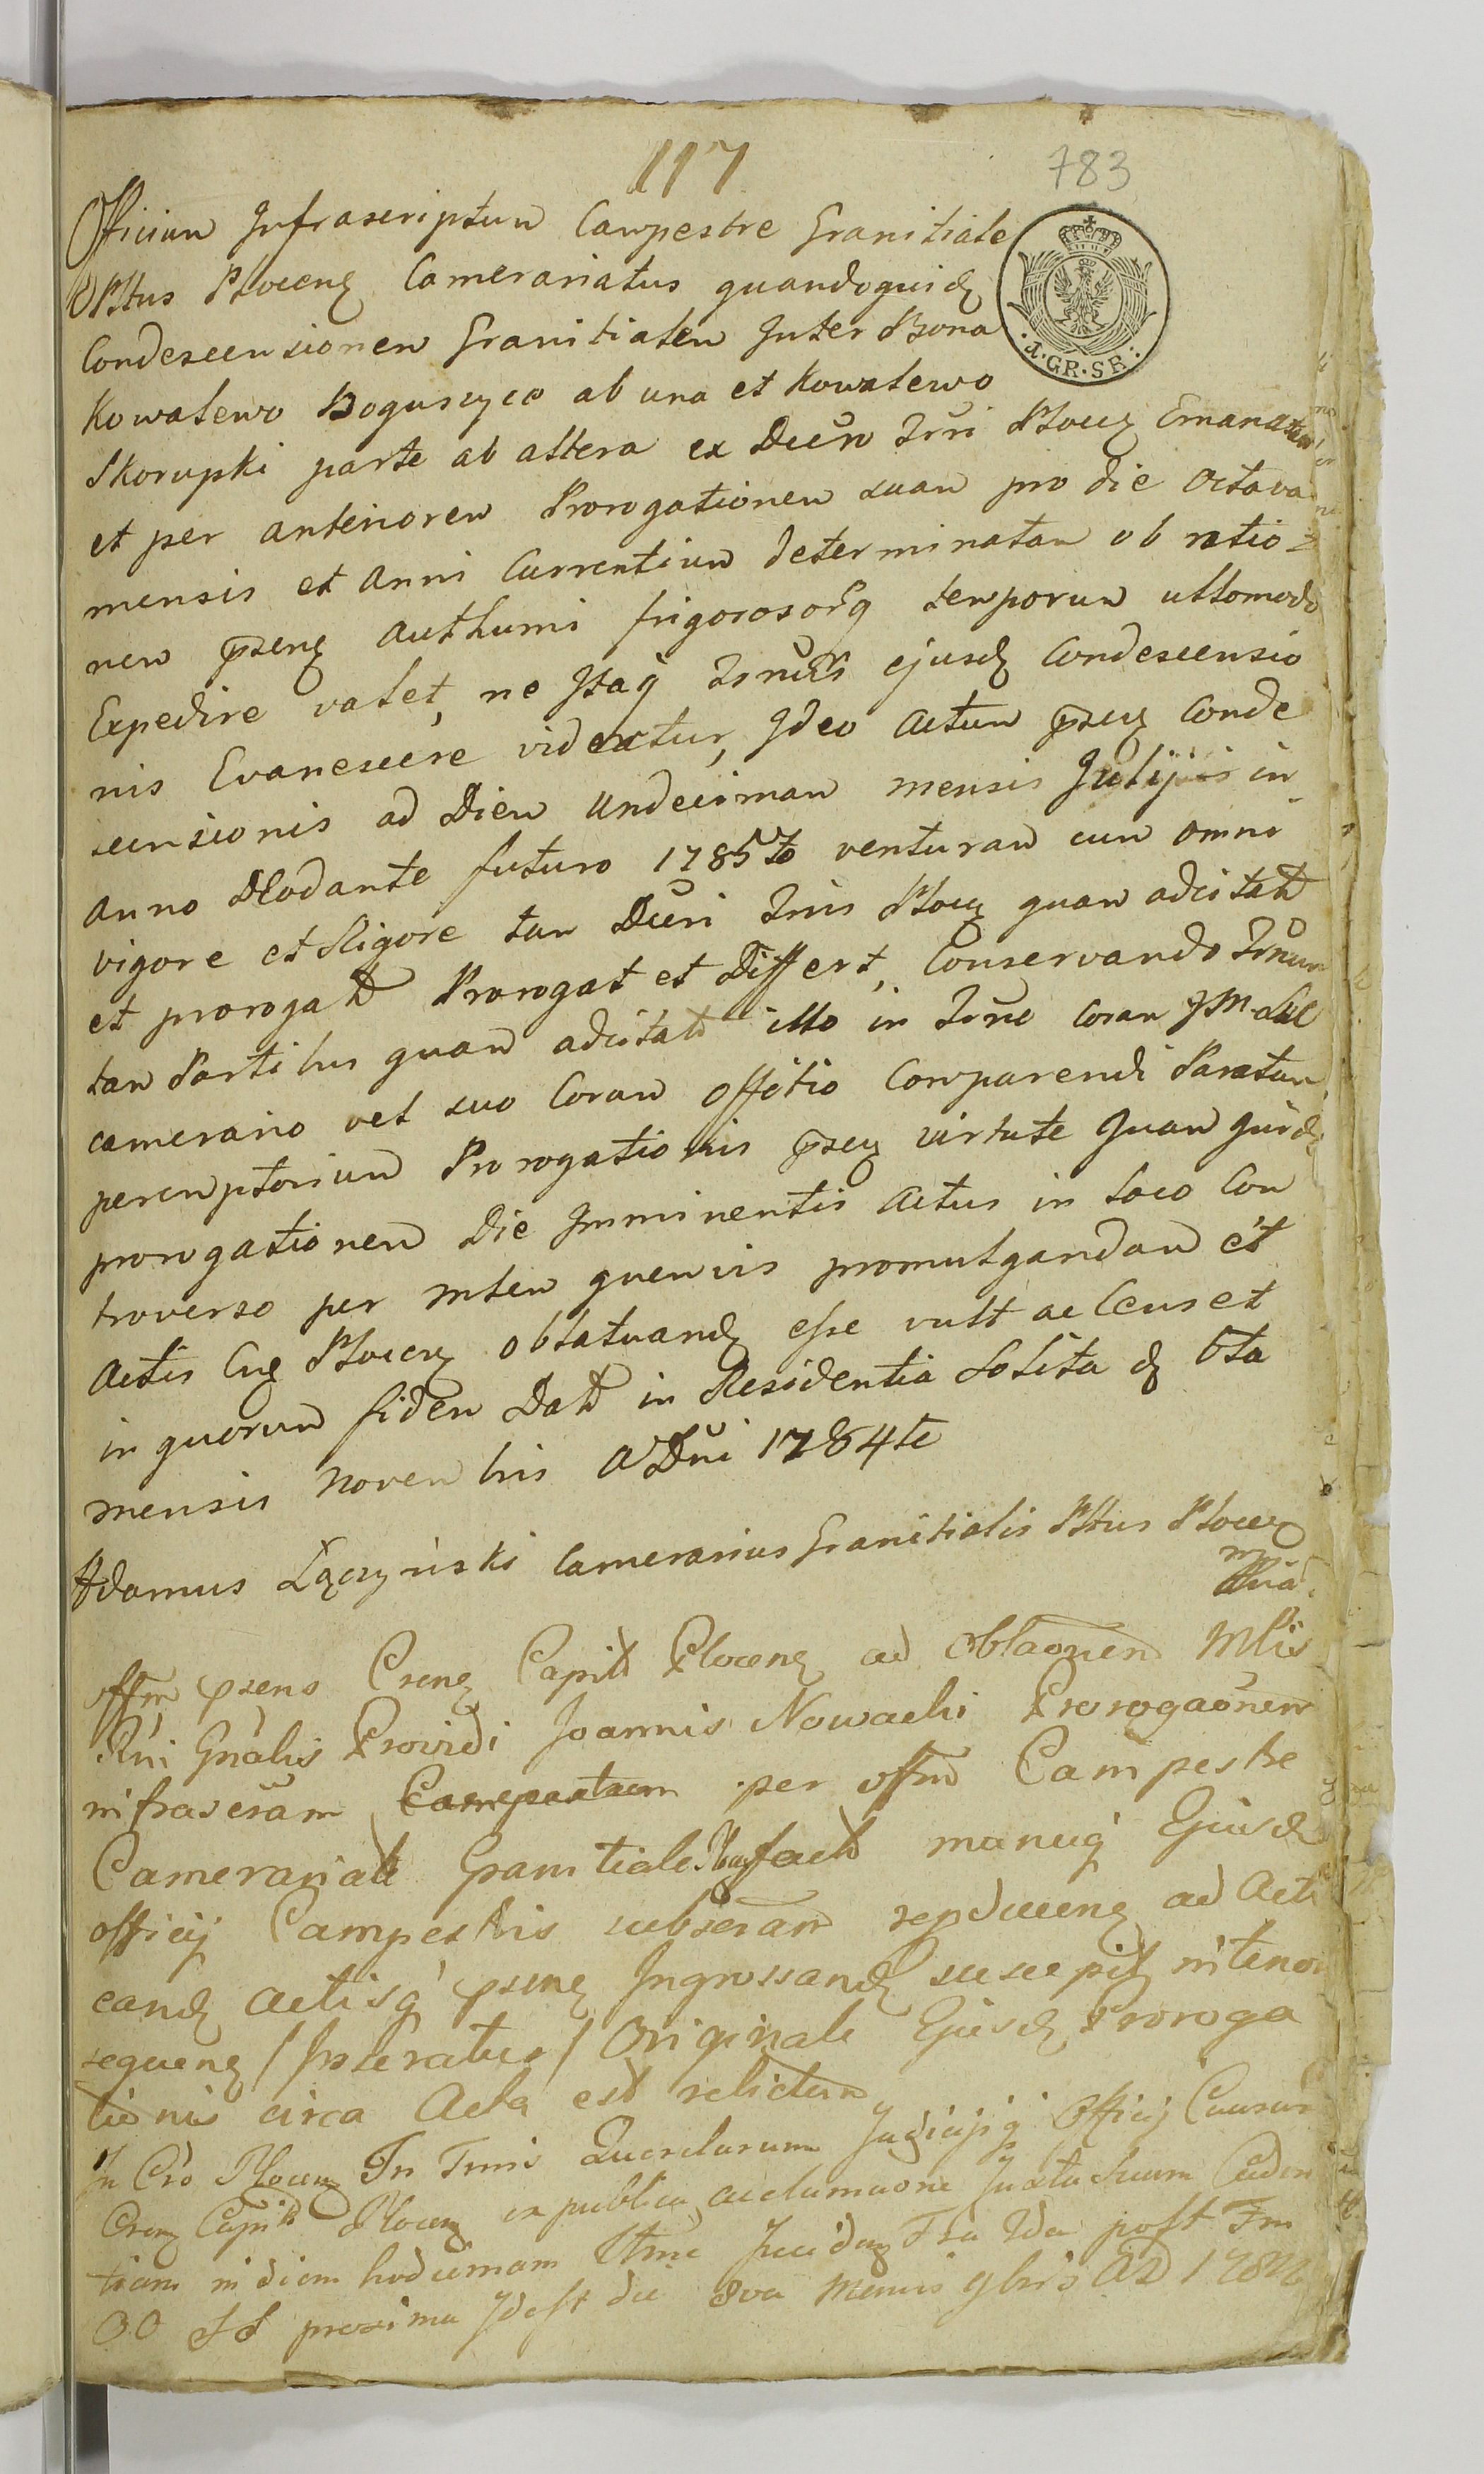 117
783
Officium Infrascriptum Campestre Granitiale
Pttus Plocen Camerariatus quandoquid
Condescensionem Granitialem Inter Bona
A·GR·SR·
Kowalewo Boguscyce ab una et Kowalewo
Skorupki parte ab altera ex Decto Trri Plocen Emanatam
et per anteriorem Prorogationem suam pro die octava
mensis et Anni Currentium determinatam ob ratio
nem psens Authumi frigorosorq temporum ultomodo
Expedire valet, ne Itaq Trnus ejusd Condescensio
nis Evanescere videatur, Ideo Actum psen Conde
scensionis ad Diem Undecimam mensis Julij in
Anno Dlodante futuro 1785to venturam cum omni
vigore et Rigore tam Dcti Trris Plocen quam adcitat
et prorogat Prorogat et Differt, Conservando Trnum
tam Partibus quam adcitat illo in Trno coram JM. Suc
camerario vel suo Coram offitio Comparendi Paratum
peremptorium Prorogationis psen virtute Quam Quid
prorogationem Die Imminentis Actus in Loco Con
troverso per mlem quemvis promulgandam et
Actis Cas Plocen oblatuand esse vult ac Censet
in quorum fidem Dat in Residentia Solita d 6ta
mensis Novembris A Dni 1784to
Adamus Łączyński Camerarius Granitialis Pttus Plocen
mpria
Offm psens Crens Capit Plocens ad oblaonem Mlis
Rni Gnalis Providi Joannis Nowacki Prorogaonem
infrascram per offm Campestre
Camerariale Granitiale fact manuq Ejusd
officij Campestris subscram repducens ad Acti
cand Actisq psens Ingrossand suscepit in tenor
sequens / Originale Ejusd Proroga
tionis circa Acta est relictum
In Cro Plocen In Trnis Querelarum Judicijq Officij Causar
Crens Capit Plocen ex publica acclamaone Juxta Suum Caden
tiam in diem hodiernam Ltme Incidens Fra 2da post Fm
OO SS proxima Idest die 8va Mensis 9bris AD 1784to